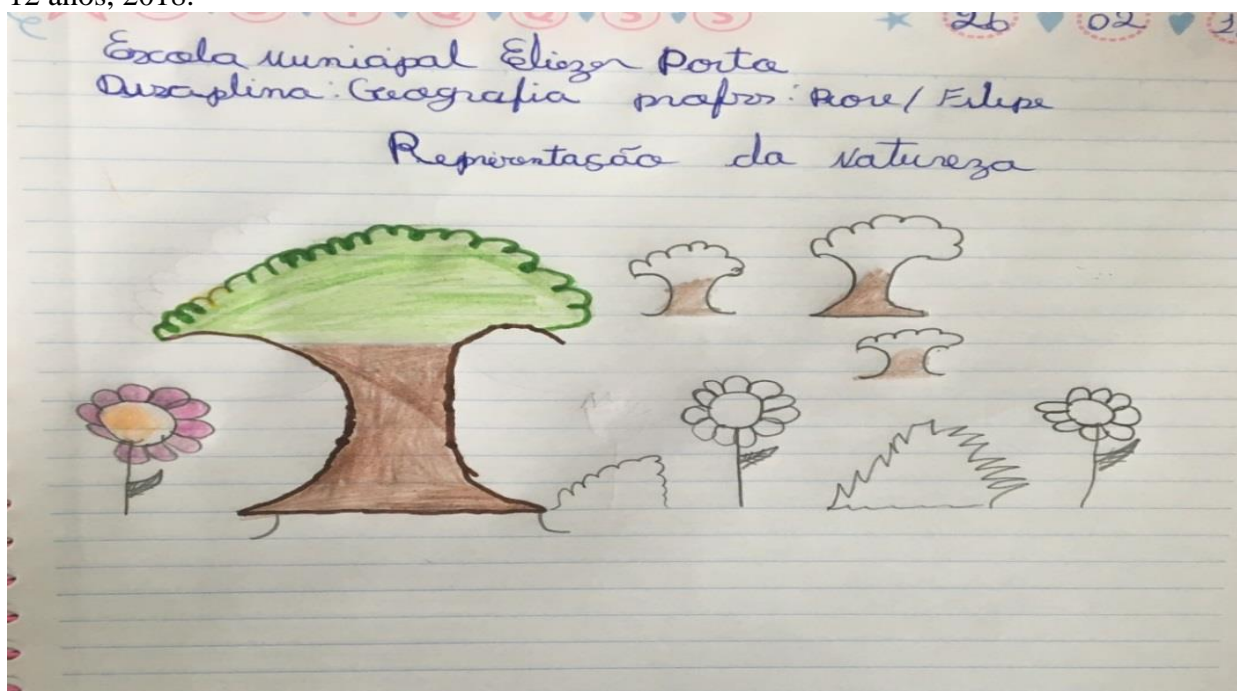 12 anos, 2018.
D S T Q Q S S 26 02 1
Escola municipal Eliezer Porto
Disciplina: Geografia profrs: / Felipe
Representação da Natureza